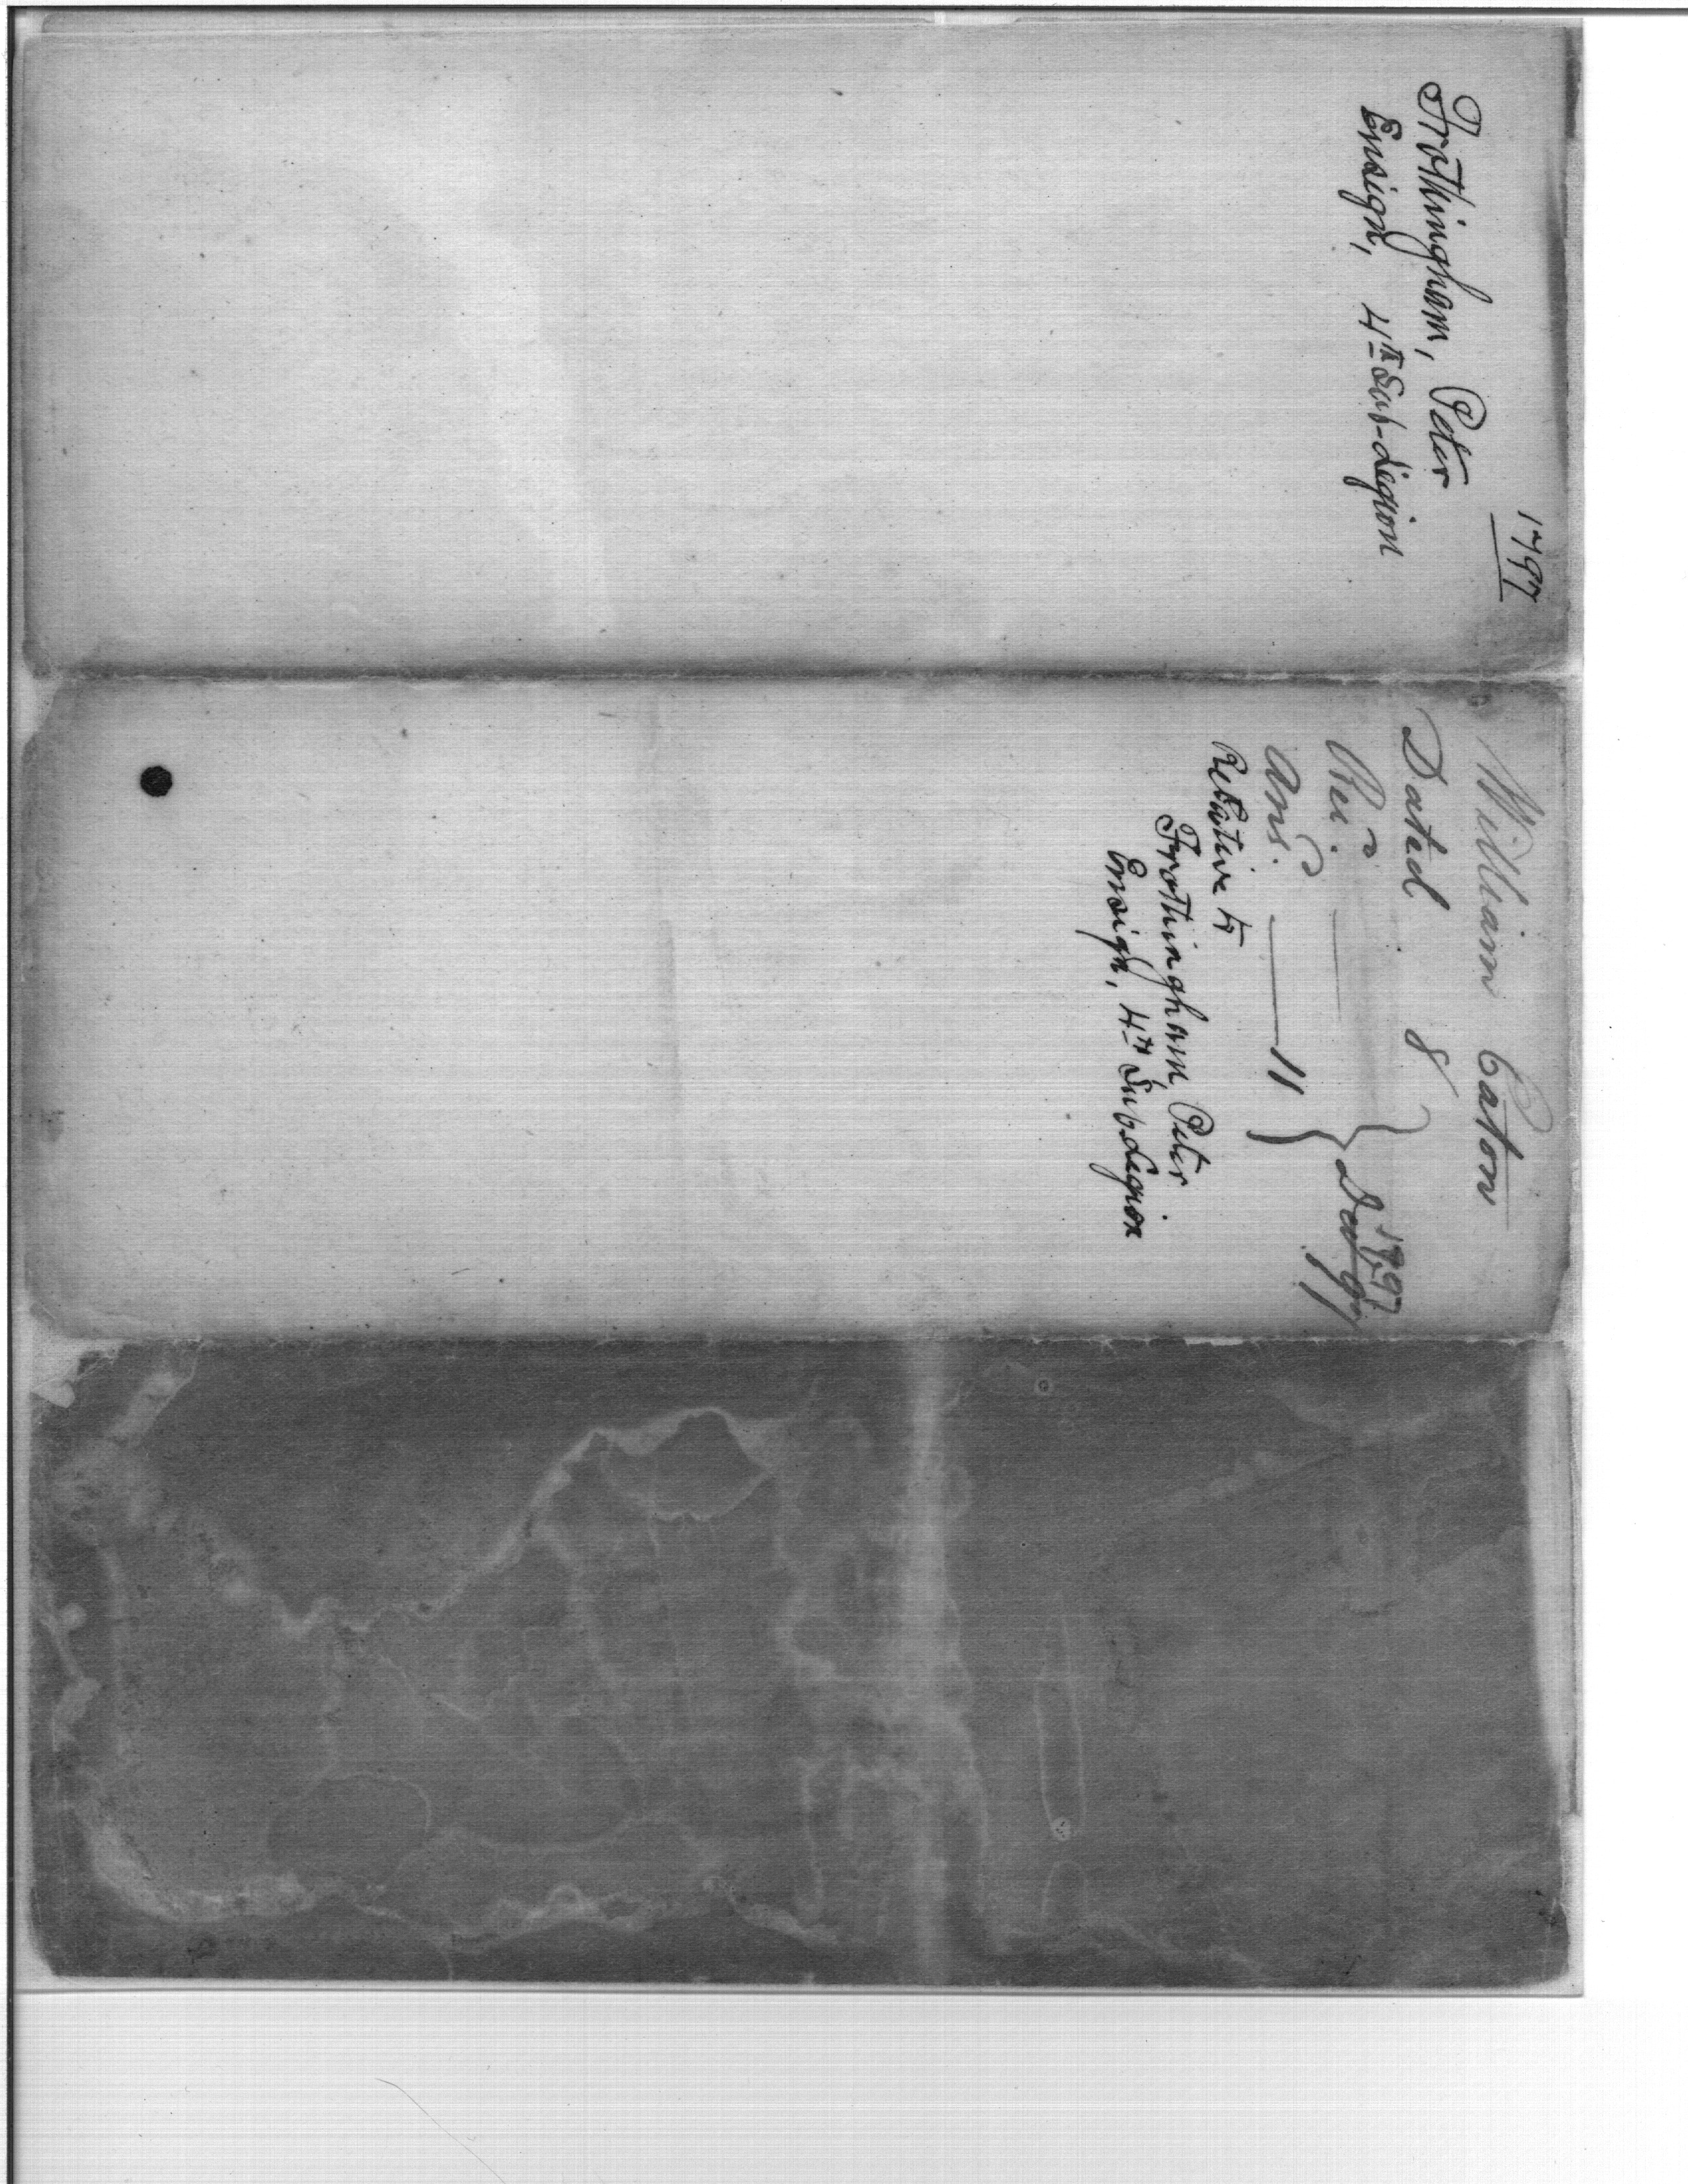 1797
Frothingham, Peter
Ensign, 4th Sub-Legion
William Eaton
Dated 8
Rec.d
Ans.d 11
1797
Relative to
Frothingham, Peter
Ensign, 4th Sub Legion